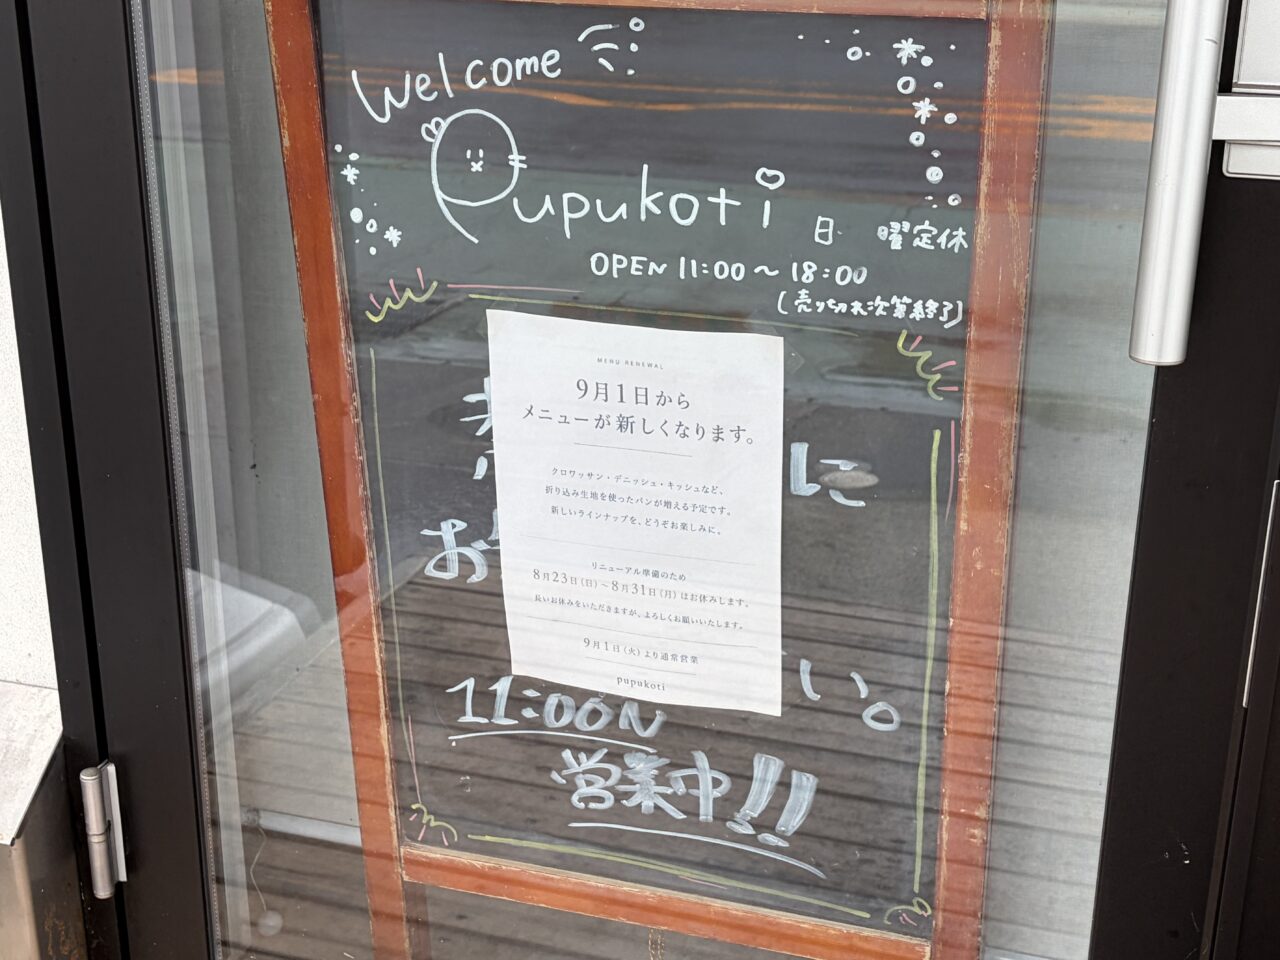 Welcome
Pupukoti
日 曜定休
OPEN 11:00〜18:00
(売り切れ次第終了)
MENU RENEWAL
9月1日から
メニューが新しくなります。
クロワッサン・デニッシュ・キッシュなど、
折り込み生地を使ったパンが増える予定です。
新しいラインナップを、どうぞお楽しみに。
リニューアル準備のため
8月23日(日)〜8月31日(月)はお休みします。
長いお休みをいただきますが、よろしくお願いいたします。
9月1日(火)より通常営業
pupukoti
に
お
い。
11:00〜
営業中!!